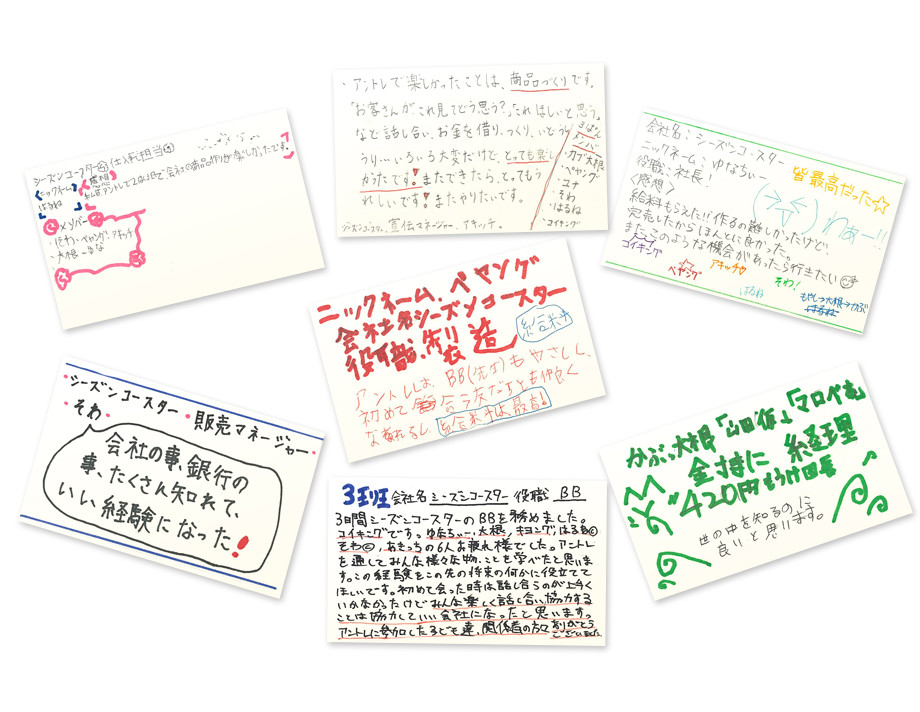 シーズンコースター
会社宣伝担当
ニックネーム
はるね
感想
メンバー
・そわ・ペヤング・アキッチ
・大根
・アントレで楽しかったことは、商品づくりです。
「お客さんがこれ見てどう思う?」「これほしいと思う」
など話し合い、お金を借り、つくり、
うり…いろいろ大変だけど、とっても楽し
かったです!またできたら、とってもう
れしいです!またやりたいです。
シーズンコースター、宣伝マネージャー、アキッチ。
3ぱん
メンバー
・カブ大根
・ペヤング
・ユナ
・そわ
・はるね
・コイキング
会社名:シーズンコースター
ニックネーム:ゆなちぃー
役職:社長!
〈感想〉
給料もらえた!!作るの難しかったけど、
完売したからほんとに良かった。
またこのような機会があったら行きたい
皆最高だった☆
わぁー!!
コイキング
ペヤング
アキッチ
そわ!
はるね
もやしっ大根→かぶ
ニックネーム、ペヤング
会社名シーズンコースター
役職、製造
給料
アントレは、BB(先生)もやさしく、
初めて会う友だちとも仲良く
なれるし、給料は、最高!
・シーズンコースター・販売マネージャー・
・そわ・
会社の事、銀行の
事、たくさん知れて、
いい経験になった!
かぶっ大根「山田仮」「マロペむ」
金持に 経理
420円もうけ回春
世の中を知るのに
良いと思います。
3班 会社名 シーズンコースター 役職 BB
3日間シーズンコースターのBBを務めました。
コイキングです。ゆなちぃー,大根,キヨング,はるね
そわ,あきっちの6人お疲れ様でした。アントレ
を通してみんな様々な物、ことを学べたと思いま
す。この経験をこの先の将来の何かに役立てて
ほしいです。初めて会った時は話し合うのが上手く
いかなかったけどみんな楽しく話し合い協力する
ことは協力していい会社になったと思います。
アントレに参加した子ども達、関係者の方々ありがとう
ございました。